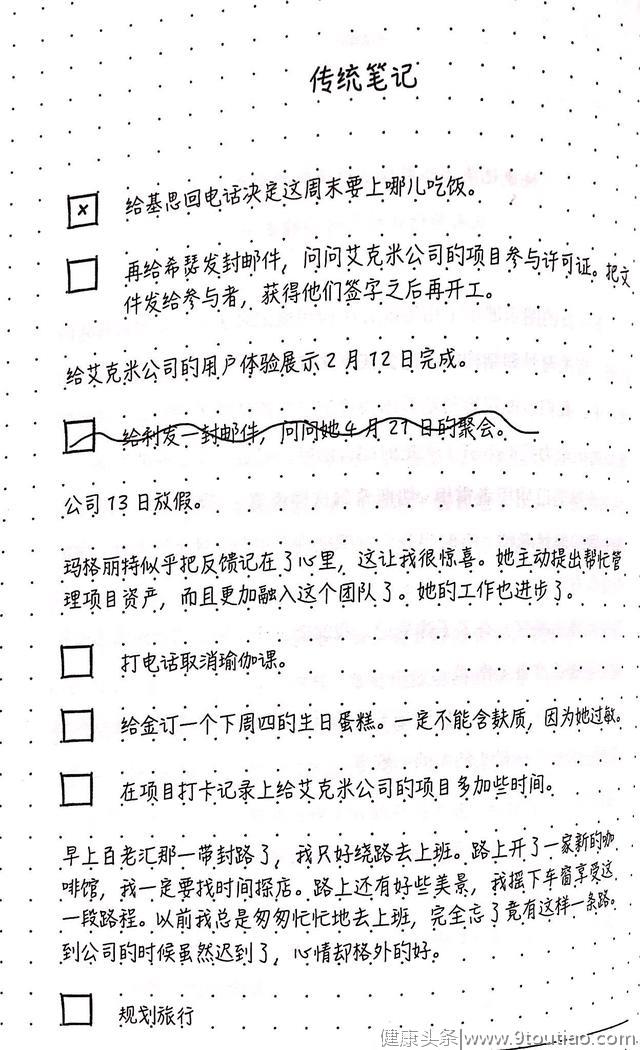 传统笔记
x 给基思回电话决定这周末要上哪儿吃饭。
再给希瑟发封邮件，问问艾克米公司的项目参与许可证。把文
件发给参与者，获得他们签字之后再开工。
给艾克米公司的用户体验展示2月12日完成。
给利发一封邮件，问问她4月21日的聚会。
公司13日放假。
玛格丽特似乎把反馈记在了心里，这让我很惊喜。她主动提出帮忙管
理项目资产，而且更加融入这个团队了。她的工作也进步了。
打电话取消瑜伽课。
给金订一个下周四的生日蛋糕。一定不能含麸质，因为她过敏。
在项目打卡记录上给艾克米公司的项目多加些时间。
早上百老汇那一带封路了，我只好绕路去上班。路上开了一家新的咖
啡馆，我一定要找时间探店。路上还有好些美景，我摇下车窗享受这
一段路程。以前我总是匆匆忙忙地去上班，完全忘了竟有这样一条路。
到公司的时候虽然迟到了，心情却格外的好。
规划旅行
健康头条|www.9toutiao.com